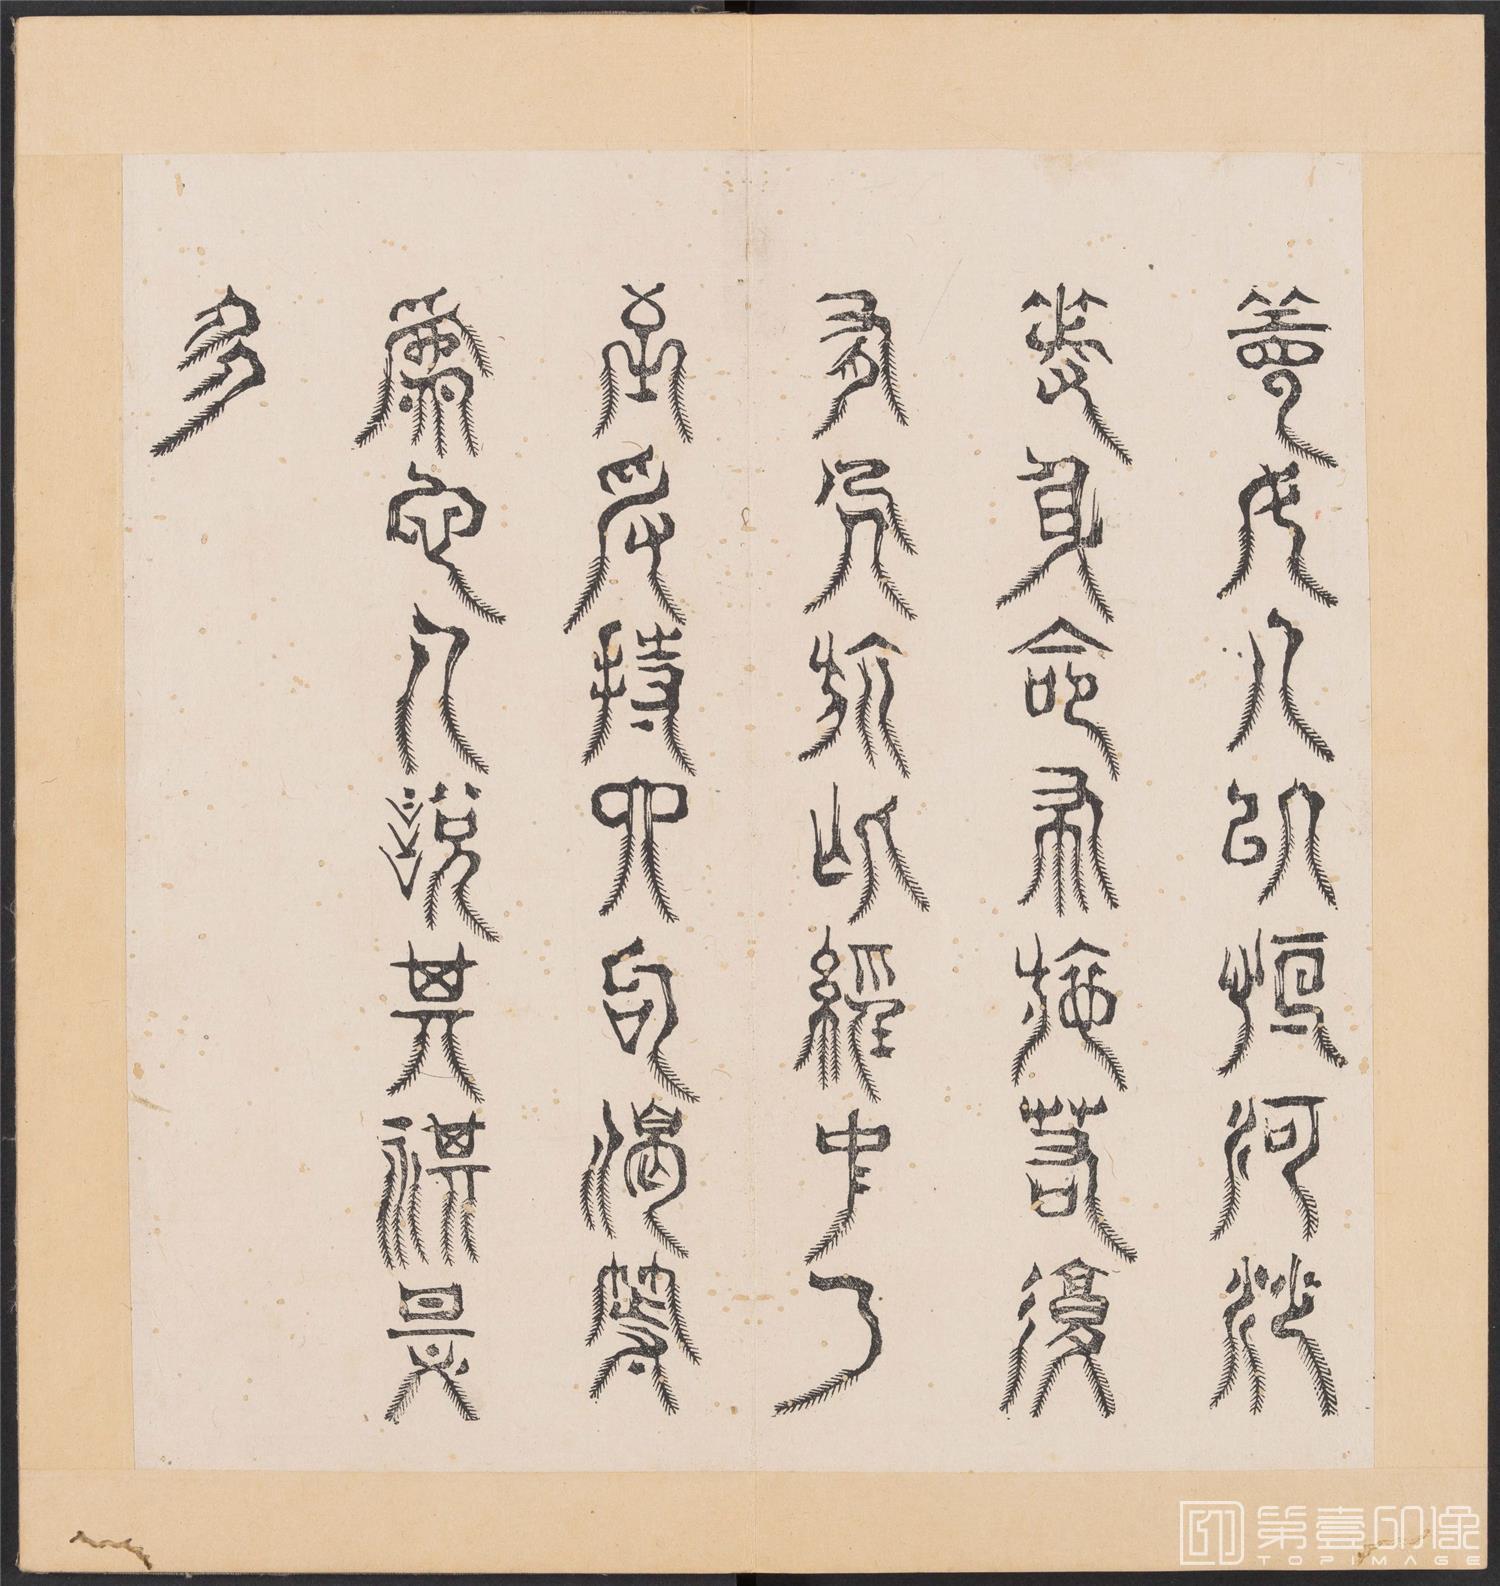 善女人以恒河沙
等身命布施若復
有人於此經中乃
至受持四句偈等
為他人說其福甚
多
第壹印像
TOPIMAGE